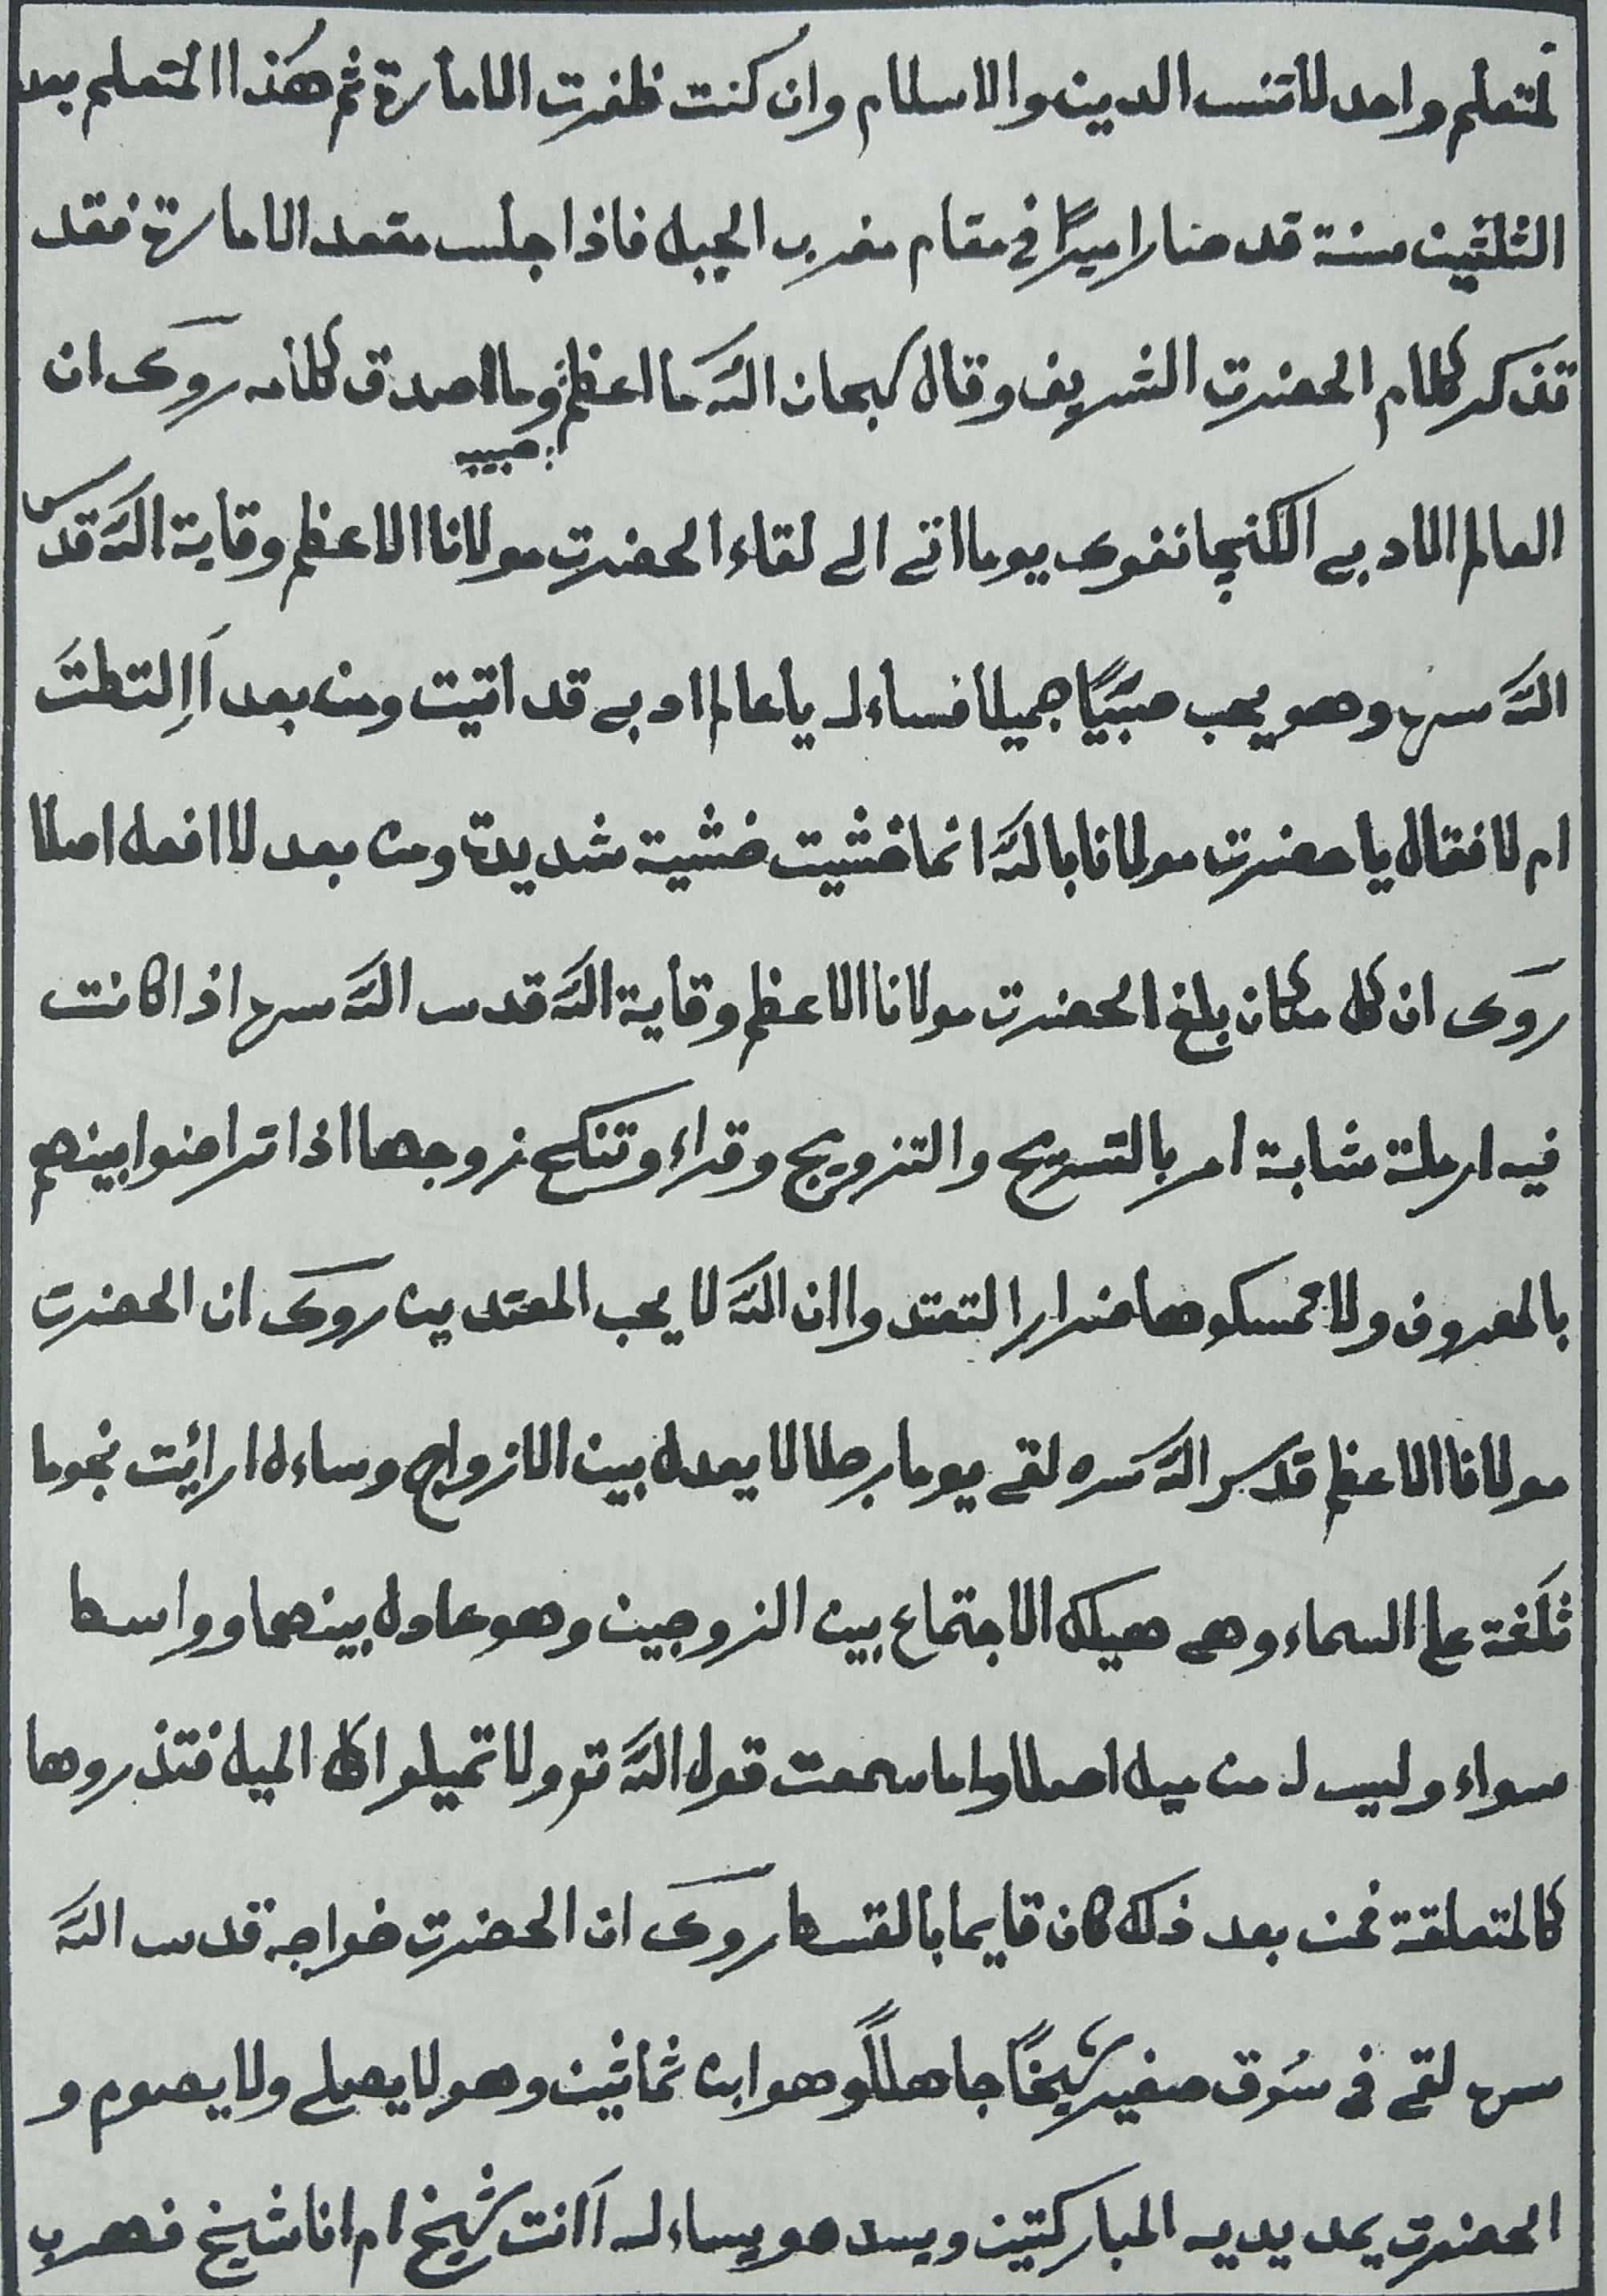 لمتعلم واحد لا تنسب الدين والاسلام وان كنت ظفرت الامارة ثم هذا المتعلم بعد
الثلثين سنة قد صنارا ميرًا في مقام مغرب الجبل فاذا جلس مقعد الامارة فقد
تذكر كلام الحضرت الشريف وقال سبحان الله ما اعظم وما اصدق كلامه روى ان
حبيبه
العالم الادبي الكنجانغوى يوما اتى الى لقاء الحضرت مولانا الاعظم وقاية الله قدس
الله سره وهو يحب صبيًا جميلا فساءله يا عالم ادبي قد اتيت ومن بعد أإلتطتَ
ام لا فقال يا حضرت مولانا بالله انما خشيت خشية شديدة ومن بعد لا افعل اصلا
روى ان كل مكان بلغ الحضرت مولانا الاعظم وقاية الله قدس الله سره اذا كانت
فيه ارملة شابة امر بالتسريح والتزويج وقراء وتنكح زوجها اذا تراضوا بينهم
بالمعروف ولا تمسكوهما ضرارا لتعتدوا ان الله لا يحب المعتدين روى ان الحضرت
مولانا الاعظم قدس الله سره لقى يوما رجلا لا يعدل بين الازواج وساءل ارائت نجوما
ثلثة على السماء وهى هيكل الاجتماع بين الزوجين وهو عادل بينهما وواسط
سواء وليس له من ميل اصلا واما سمعت قول الله تع ولا تميلوا كل الميل فتذروها
كالمتعلقة فمن بعد ذلك كان قايما بالقسط روى ان الحضرت خواجه قدس الله
سره لقى فى سُوق صغير شيخًا جاهلًا وهو ابن ثمانين وهو لا يصلى ولا يصوم و
الحضرت يمد يديه المباركتين ويسد هو يساءله أانت شيخ ام انا شيخ فهرب